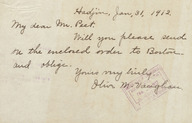 Hadjin, Jan, 31, 1912.
My dear Mr. Peet.
Will you please send
on the enclosed order to Boston
and oblige.
Yours very truly.
Olive M. Vaughan